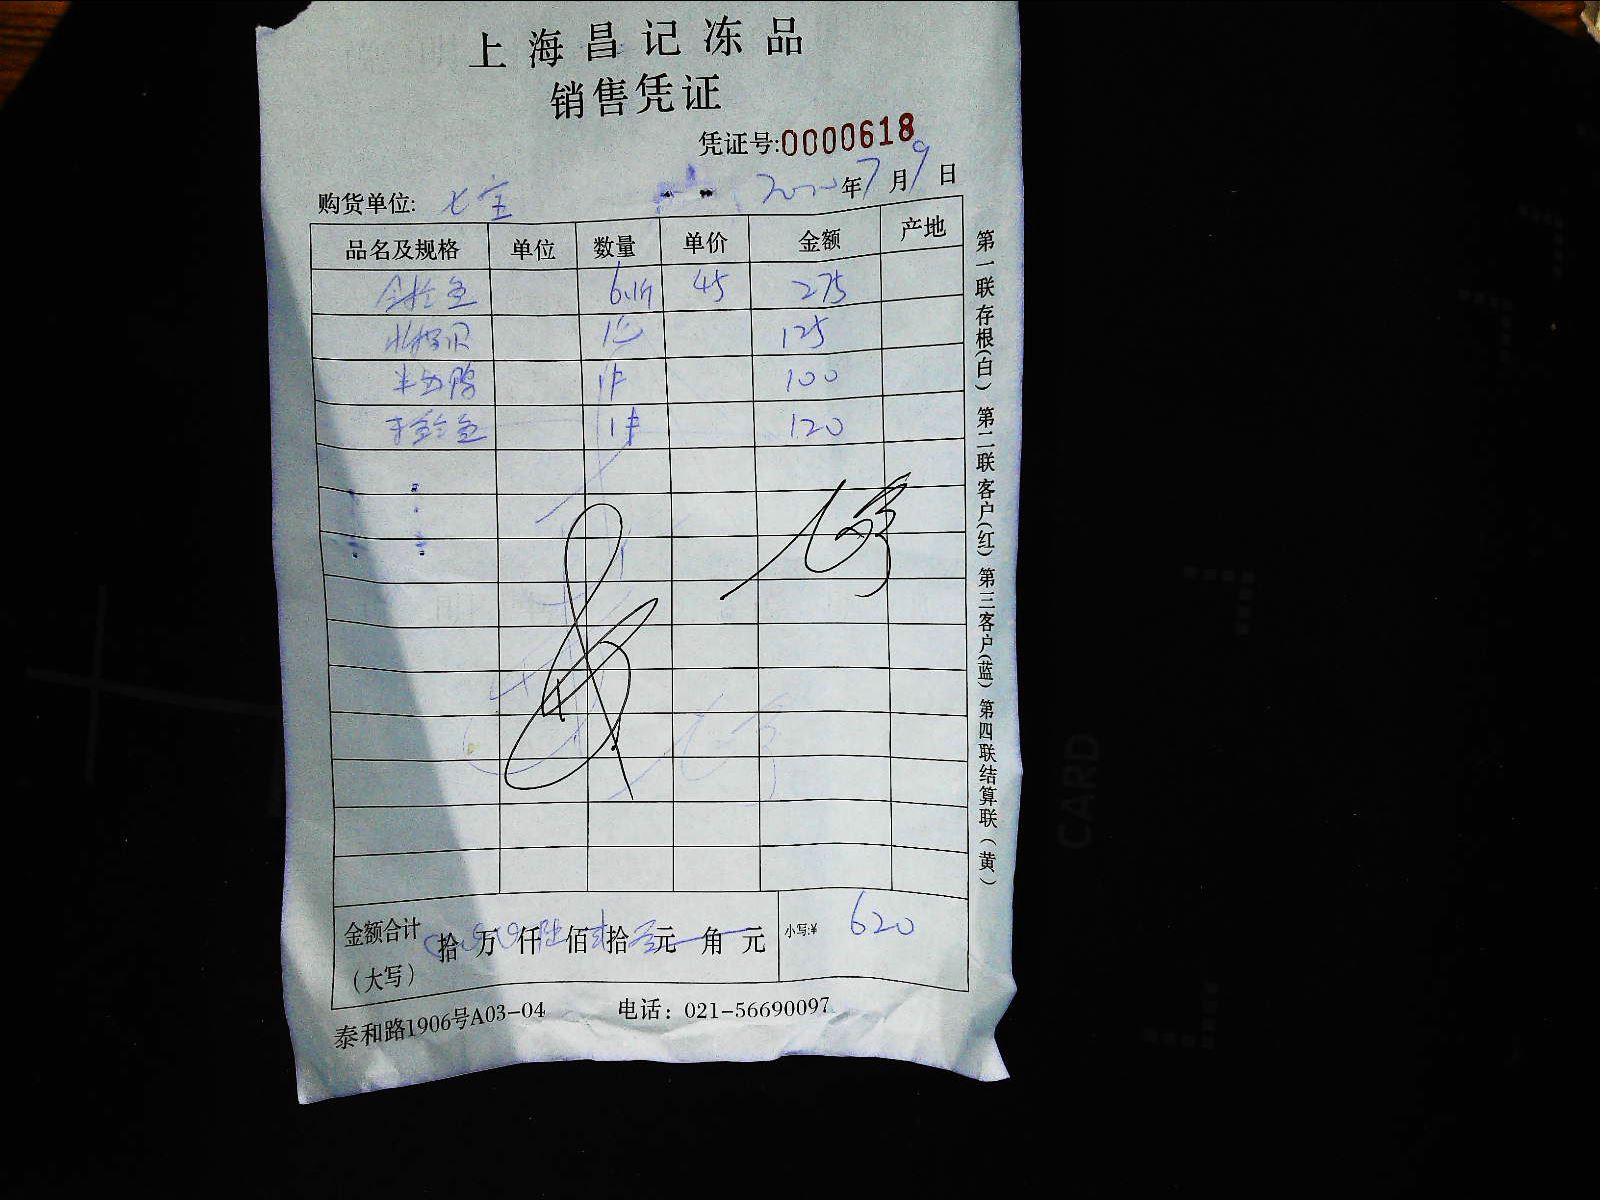 上海昌记冻品
销售凭证
凭证号:0000618
购货单位: 七宝 2020年7月9日
品名及规格 单位 数量 单价 金额 产地
金枪鱼 6.1斤 45 275
北极贝 1 125
1件 100
鱼 1件 120
金额合计(大写) 拾万仟陆佰贰拾元角元 小写:¥ 620
泰和路1906号A03-04 电话：021-56690097
第一联存根(白) 第二联客户(红) 第三客户(蓝) 第四联结算联(黄)
CARD